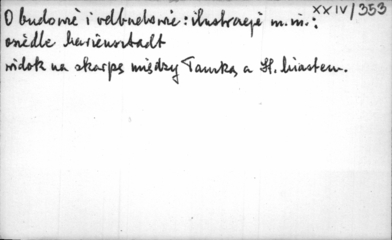 XXIV/353
O budowie i odbudowie: ilustracje m.in.:
osiedle Mariensztadt
widok na skarpę między Tamką a St. Miastem.